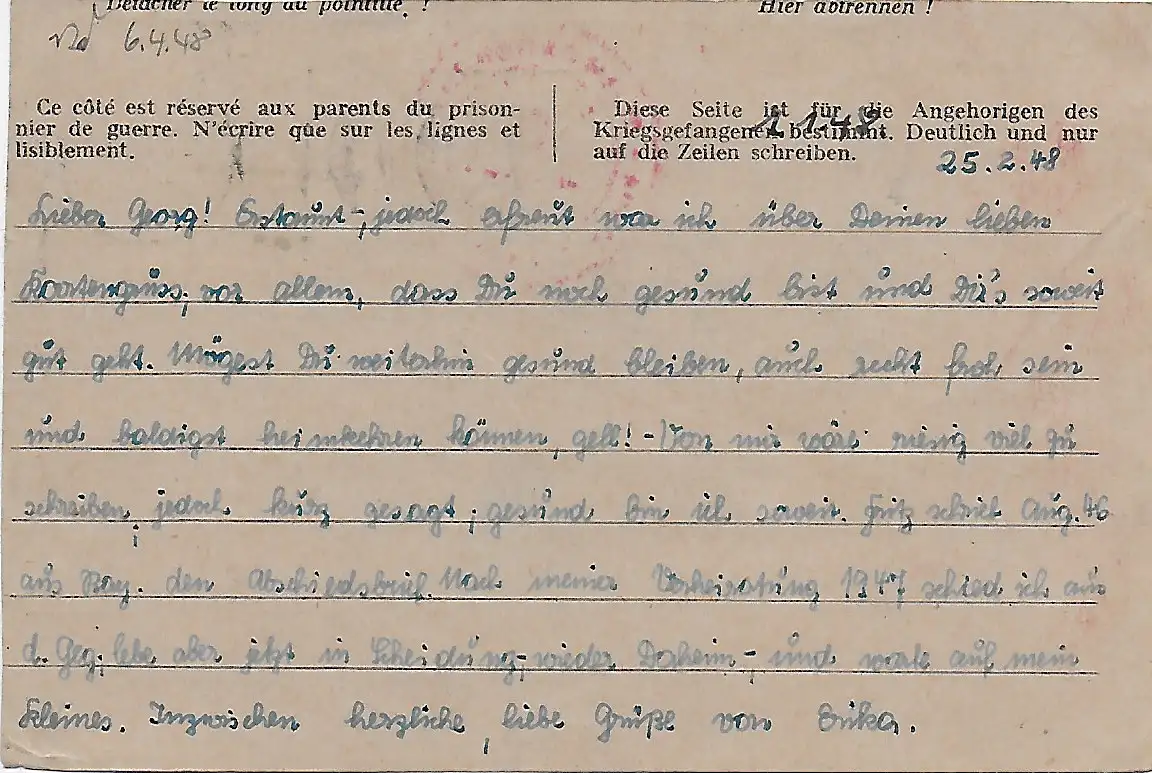 Détacher le long du pointillé. !
Hier abtrennen !
6.4.48
Ce côté est réservé aux parents du prison-
nier de guerre. N'écrire que sur les lignes et
lisiblement.
Diese Seite ist für die Angehorigen des
Kriegsgefangenen bestimmt. Deutlich und nur
auf die Zeilen schreiben.
25.2.48
Lieber Georg! Erstaunt-, jedoch erfreut war ich über Deinen lieben
Kartengruss, vor allem, dass Du noch gesund bist und Dir's soweit
gut geht. Mögest Du weiterhin gesund bleiben, auch recht froh sein
und baldigst heimkehren können, gell! - Von mir wäre viel zu
schreiben, jedoch kurz gesagt; gesund bin ich soweit. Fritz schrieb Aug. 46
aus den Abschiedsbrief. Nach meiner Verheiratung 1947 schied ich aus
d. Geg; lebe aber jetzt in Scheidung,-wieder Daheim,- und warte auf mein
Kleines. Inzwischen herzliche, liebe Grüße von Erika.